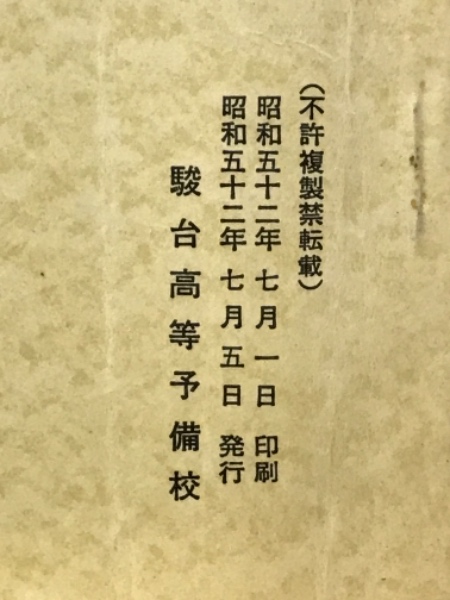 （不許複製禁転載）
昭和五十二年 七月一日 印刷
昭和五十二年 七月五日 発行
駿台高等予備校